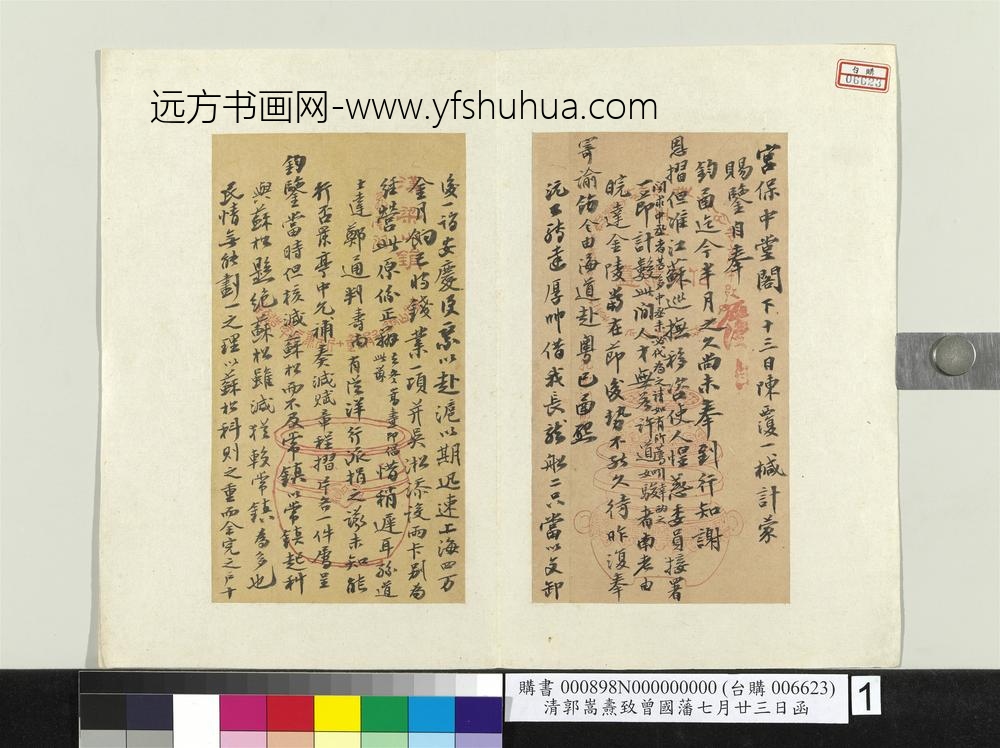 远方书画网-www.yfshuhua.com
台購
006623
宮保中堂閣下十三日陳覆一椷計蒙
賜鑒自奉
鈞函迄今半月之久尚未奉到行知謝
恩摺但准江蘇巡撫移咨使人惶惑委員接署
一立即計數此間人才無多許道女
皖達金陵當在節後勢不能久待昨復奉
寄諭飭令由海道赴粵已函懇
沅公轉達厚帥借我長龍船二只當以交卸
後一詣安慶促裝以赴滬以期迅速上海四万
金月餉毛詩錢業一項并吳淞添設兩卡別為
經營此原
士達鄭通判壽南有從洋行派捐之議未知能
行否景亭中允補奏減賦章程摺片各一件寄呈
鈞鑒當時但核減蘇松而不及常鎮以常鎮起科
與蘇松懸絕蘇松雖減猶較常鎮為多也
民情無能劃一之理以蘇松科則之重而全完之戶十
購書 000898N000000000 (台購 006623)
清郭嵩燾致曾國藩七月廿三日函
1